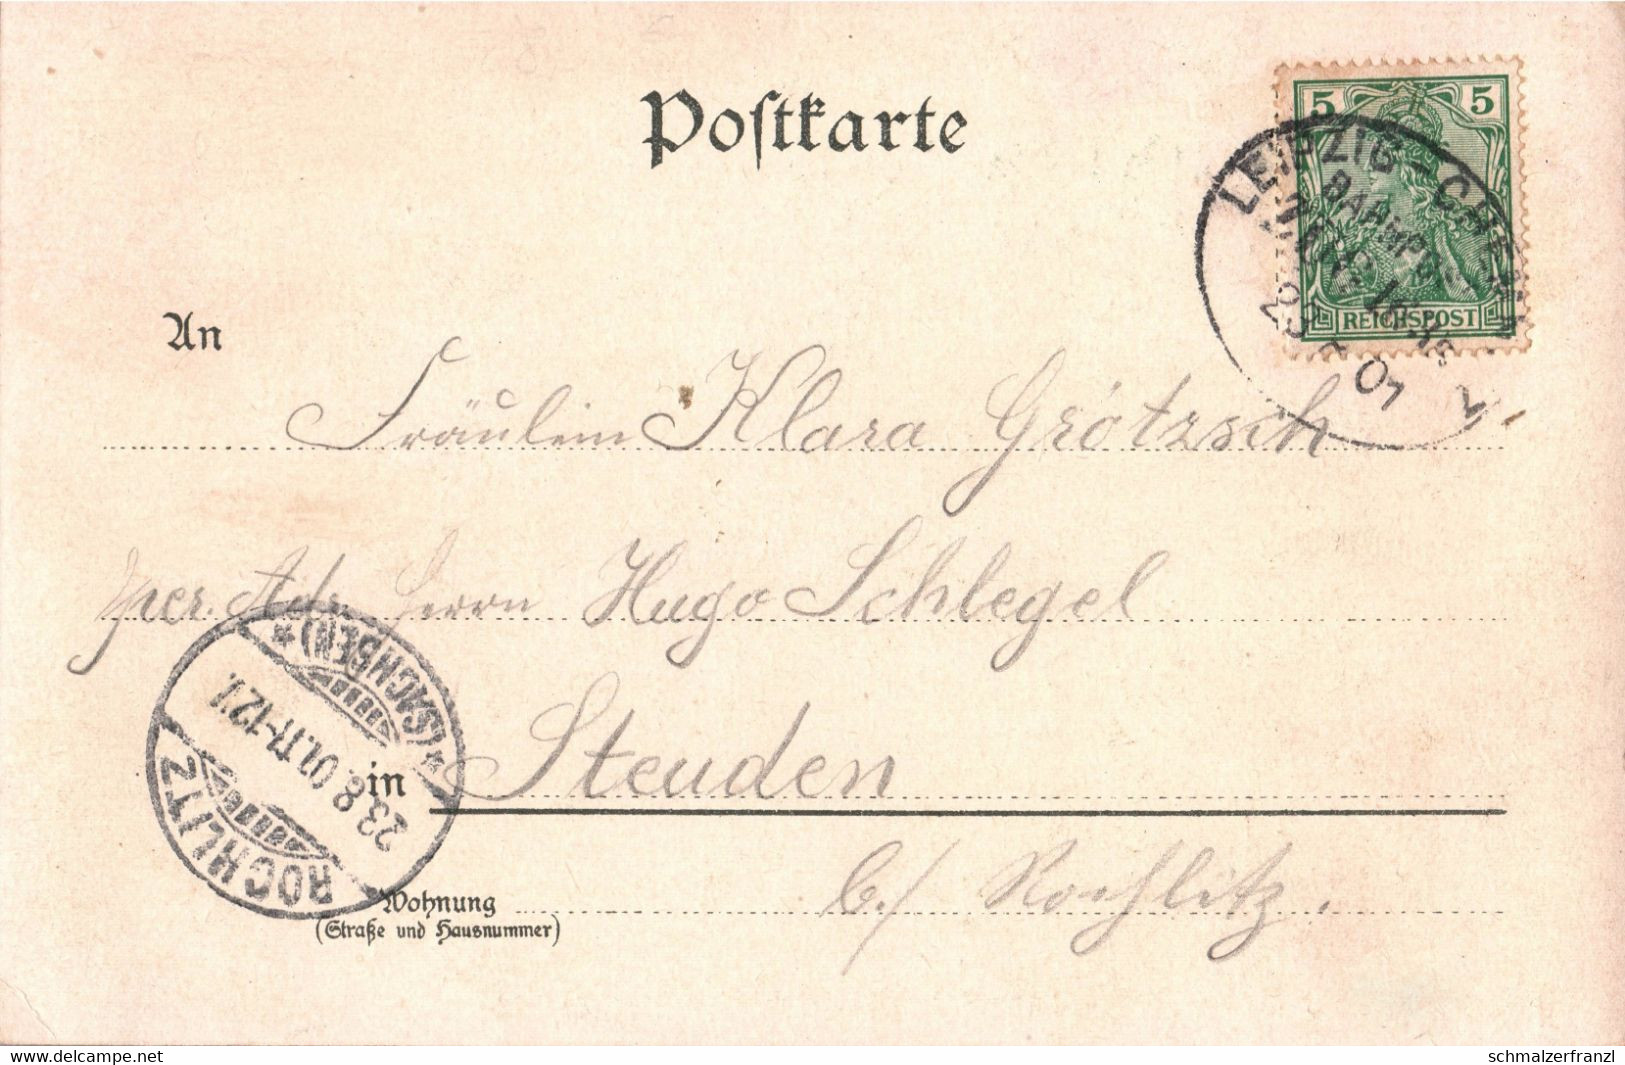 Postkarte
5 5
REICHSPOST
LEIPZIG - CHEMN
BAHNPOST
ZUG
01
An
Fräulein Klara Grötzsch
per. Adr. Herrn Hugo Schlegel
in Steuden
b./ Rochlitz.
Wohnung
(Straße und Hausnummer)
ROCHLITZ
23.8.01.11-12V.
* (SACHSEN) *
delcampe.net
schmalzerfranzl